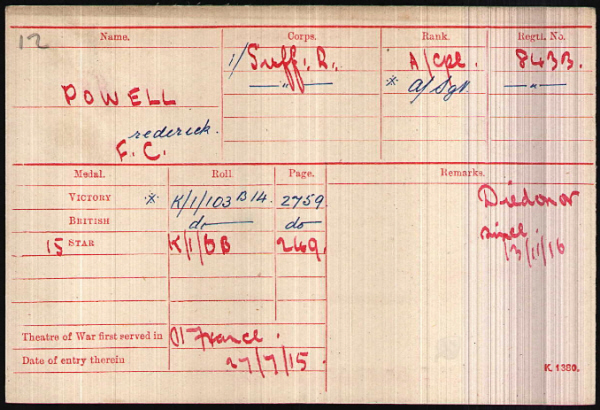 12
Name. Corps. Rank. Regtl. No.
1/ Suff. R. A/Cpl. 8433.
POWELL —"— * A/Sgt —"—
rederick.
F. C.
Medal. Roll. Page. Remarks.
VICTORY * K/1/103 B 14. 2759 Died on or
BRITISH do do since
15 STAR K/1/8B 249. 13/11/16
Theatre of War first served in (1) France.
Date of entry therein 27/7/15.
K. 1380.